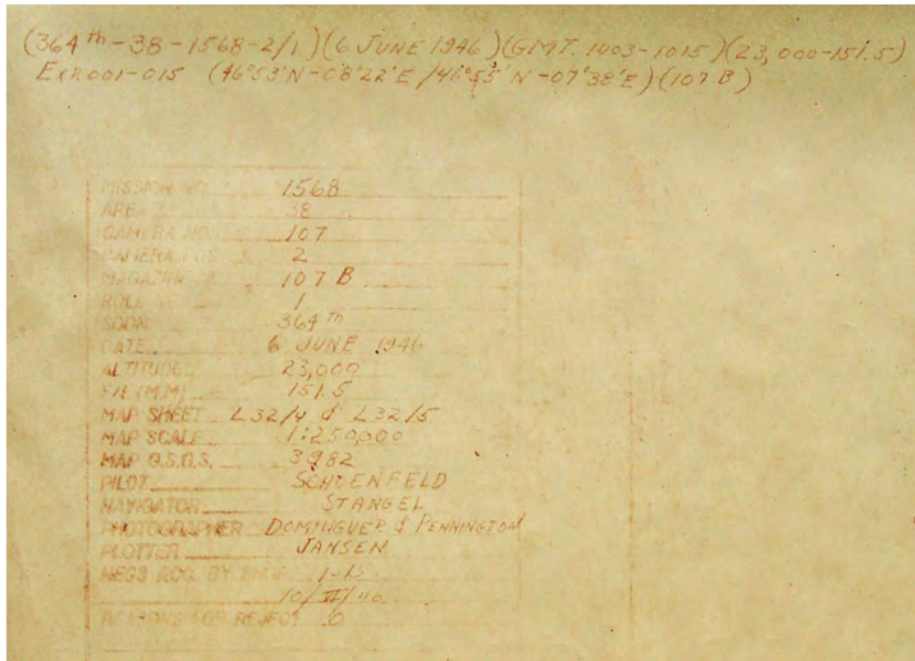 (364th-38-1568-2/1)(6 JUNE 1946)(GMT. 1003-1015)(23,000-151.5)
EXP.001-015 (46°53'N-08°22'E/46°55'N-07°38'E)(107 B)
MISSION NO. 1568
AREA 38
CAMERA NO. 107
CAMERA POS. 2
MAGAZINE 107 B
ROLL NO. 1
SQDN. 364th
DATE 6 JUNE 1946
ALTITUDE 23,000
F/L (M.M.) 151.5
MAP SHEET L32/4 & L32/5
MAP SCALE 1:250,000
MAP G.S.G.S. 3982
PILOT SCHOENFELD
NAVIGATOR STANGEL
PHOTOGRAPHER DOMINGUER & PENNINGTON
PLOTTER JANSEN
NEGS REC. BY 1-15
10/VI/46
REASONS FOR REJECT 0